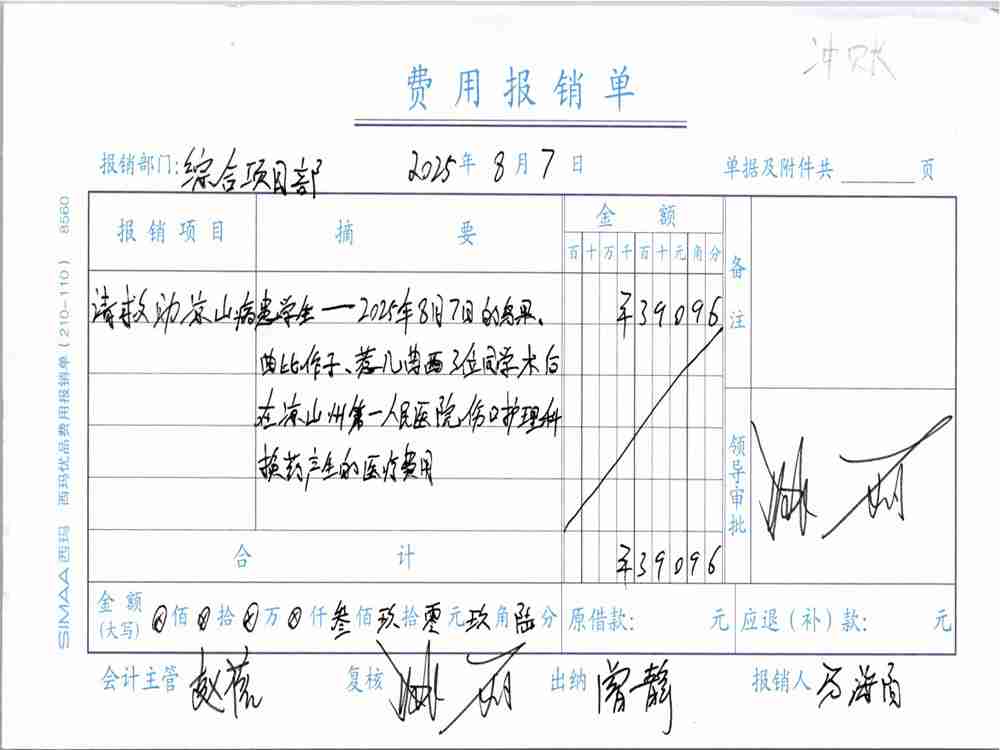 冲账
费用报销单
报销部门: 综合项目部 2025年 8月 7日 单据及附件共 页
报销项目 摘要 金额 备注
百十万千百十元角分
请救助凉山病患学生一2025年8月7日的乌果、 ¥39096
曲比作子、惹几曲西3位同学术后
在凉山州第一人民医院伤口护理科
换药产生的医疗费用
领导审批
合计 ¥39096
金额(大写) ⊗佰⊗拾⊗万⊗仟叁佰玖拾零元玖角陆分 原借款: 元 应退(补)款: 元
会计主管 复核 出纳 曾静 报销人 马海
SIMAA西玛 西玛优品费用报销单(210-110) 8560